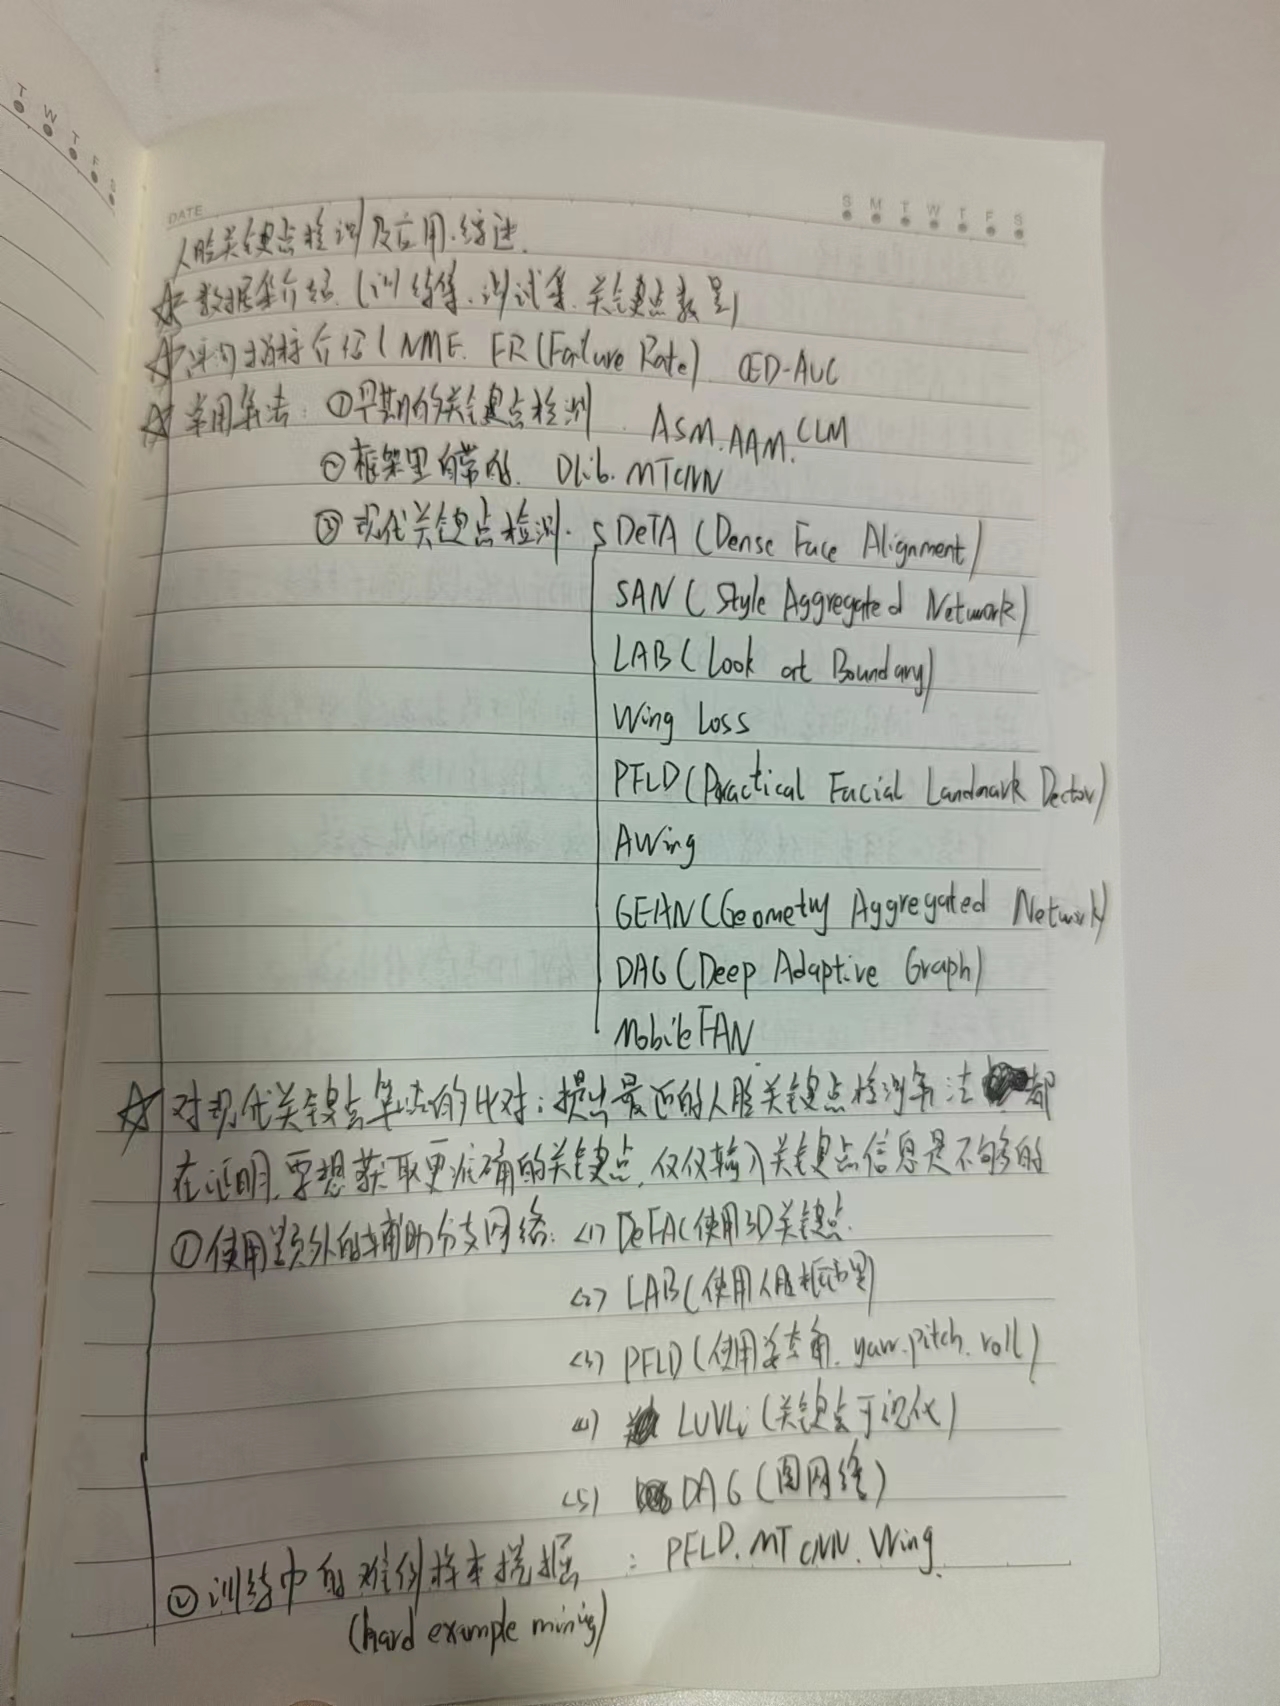 T W T F S
DATE
S M T W T F S
人脸关键点检测及应用.综述.
☆ 数据集介绍.(训练集.测试集.关键点数量)
☆ 评价指标介绍(NME. FR(Failure Rate) CED-AUC
☆ 常用算法: ①早期的关键点检测. ASM.AAM.CLM
②框架里自带的. Dlib.MTCNN
③现代关键点检测. DeTA (Dense Face Alignment)
SAN (Style Aggregated Network)
LAB (Look at Boundary)
Wing Loss
PFLD (Practical Facial Landmark Dector)
AWing
GEAN (Geometry Aggregated Network)
DAG (Deep Adaptive Graph)
MobileFAN
☆ 对现代关键点算法的比对: 提出最近的人脸关键点检测算法 都
在证明.要想获取更准确的关键点,仅仅输入关键点信息是不够的
①使用额外的辅助分支网络: <1> DeFA(使用3D关键点.
<2> LAB(使用人脸框
<3> PFLD (使用姿态角. yaw.pitch.roll)
<4> LUVLi (关键点可视化)
<5> DAG (图网络)
②训练中的难例样本挖掘 : PFLD.MTCNN.Wing.
(hard example minig)